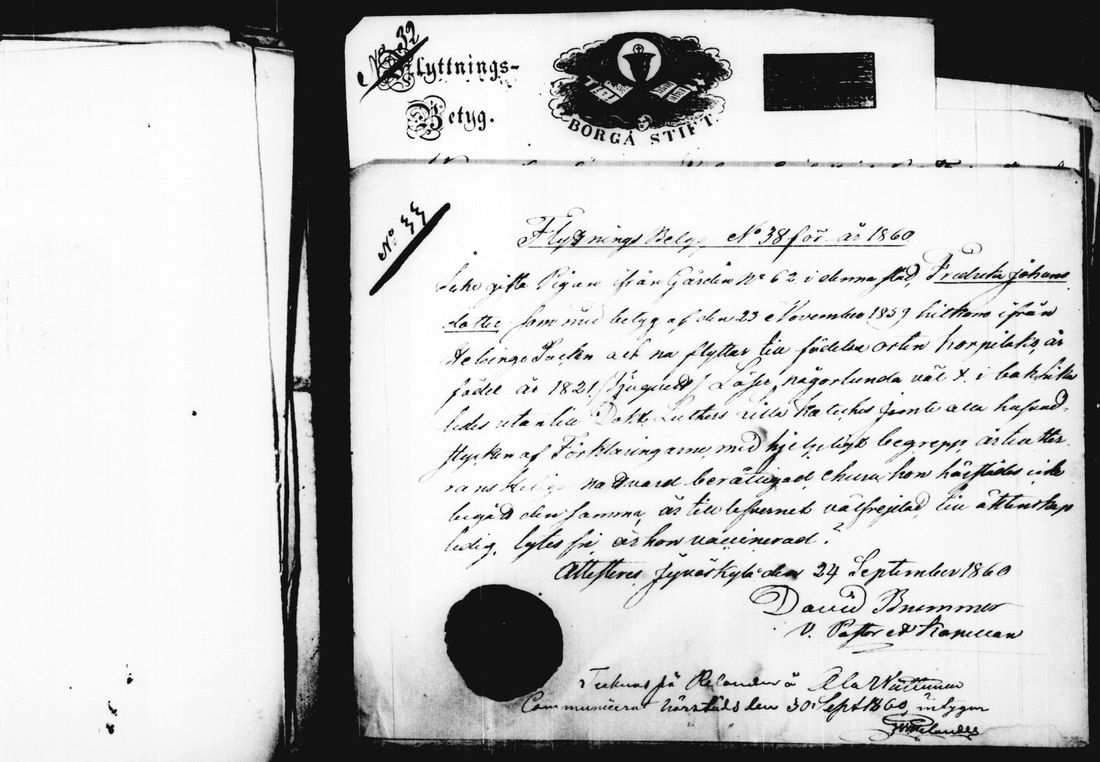 No 32
Flyttnings-
Betyg.
BORGÅ STIFT
No 33
Flyttnings Betyg No 38 för år 1860
gifta Pigan ifrån Gården No 62 i denna stad, Fredrika Johans
dotter, som med betyg af den 23 November 1859 hitkom ifrån
Helsinge Sockn och nu flyttar till födelse orten Korpilaks, är
född år 1821, Läser någorlunda väl i bok
ledes utantill Dokt Luthers Lilla Kateches jemte alla hufvud-
stycken af Förklaringarne med hjelpligt begrepp, är till
nadvard berättigad, ehuru hon härstädes icke
begått den samma, är till lefvernet välfrejdad, till äktenskap
ledig, lytes fri, är hon vaccinerad.
Attesteras, Jyväskylä den 24 September 1860
David Brummer
V. Pastor et
Tecknas på
Communicerat härstädes den 30 Sept 1860, intygar